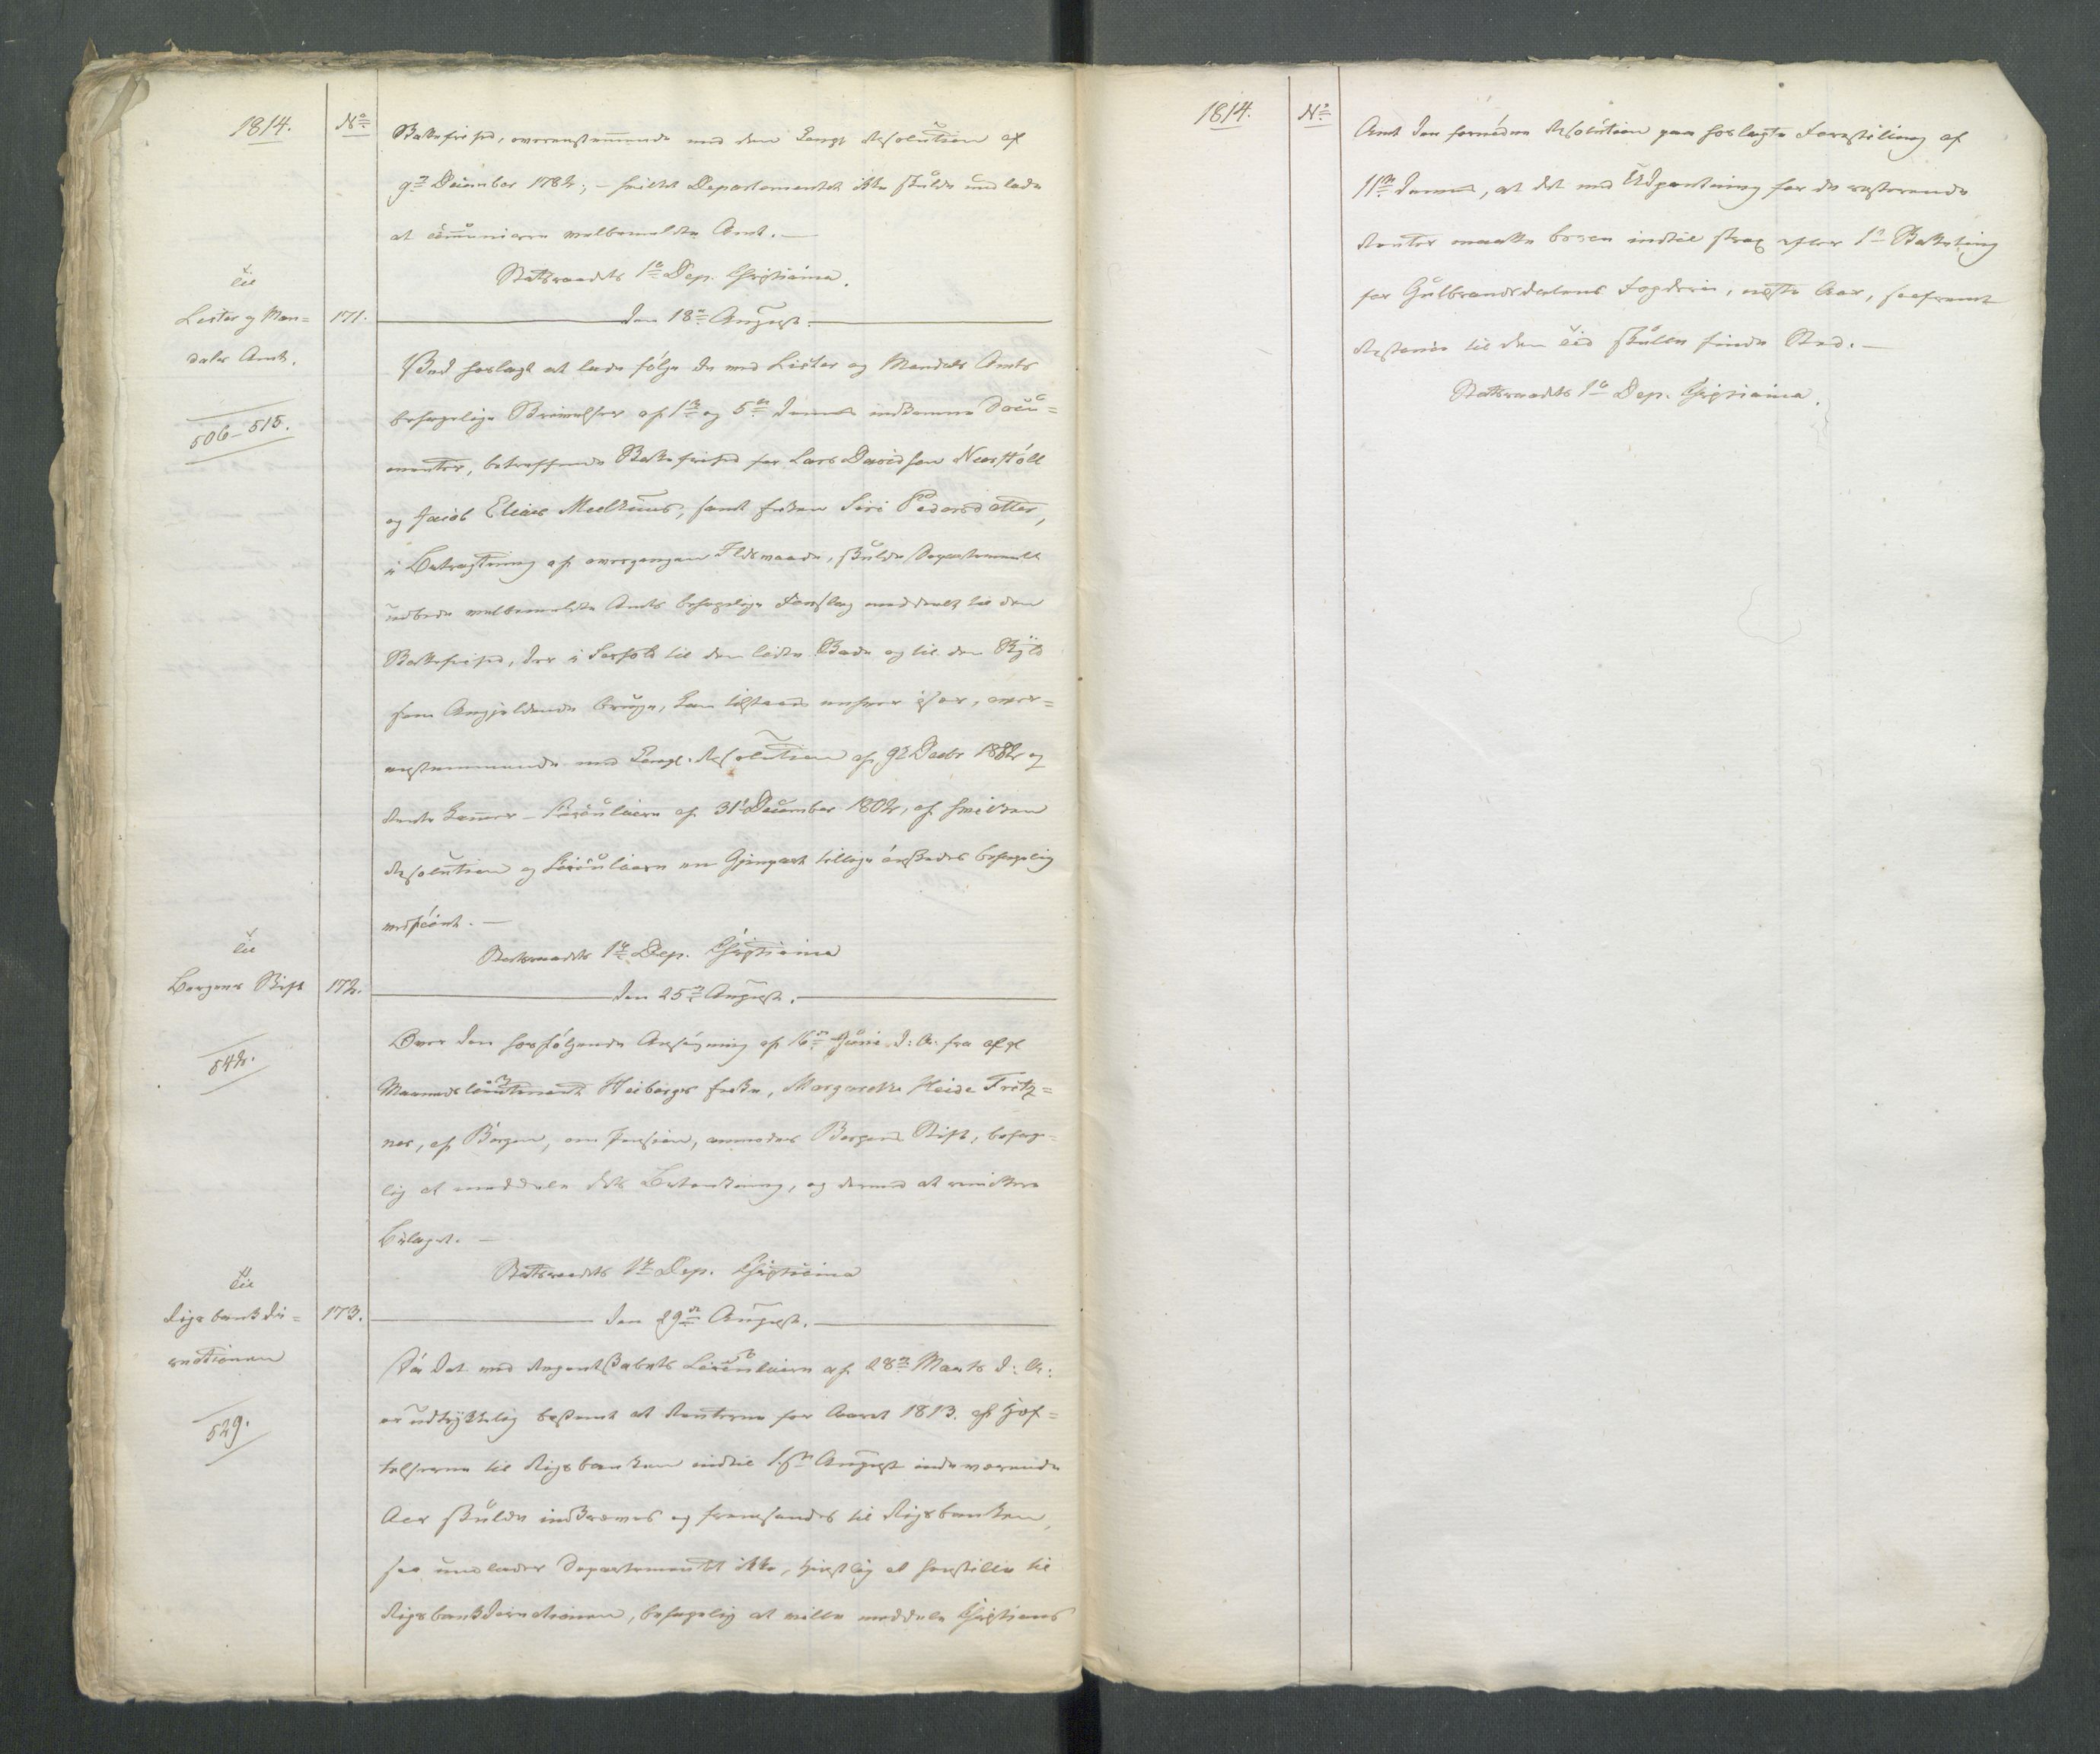 1814.
No
Skattefrihed, overeensstemmende med den Kongl. Resolution af
9de December 1782; – hvilket Departementet ikke skulde undlade
at communicere velbemeldte Amt. –
Statsraadets 1te Dep. Christiania.
Til
Lister og Man-
dals Amt.
171.
den 18de August.
506–515.
Ved hoslagt at lade følge de med Lister og Mandals Amts
behagelige Skrivelser af 1ste og 5te dennes indkomne Docu-
menter, betreffende Skattefrihed for Lars Davidsen
og Jacob Elias samt Enken Siri Pedersdatter,
i Betragtning af overgangen Ildsvaade, skulde Departementet
udbede velbemeldte Amts behagelige Forslag meddeelt til den
Skattefrihed, der i Forhold til den lidte Skade og til den Skyld
som Angjeldende bruge, kan tilstaaes enhver især, over-
eensstemmende med Kongl. Resolution af 9de Decbr 1782 og
Rente Kammer-Circulaire af 31te December 1802, af hvilken
Resolution og Circulaire en Gjenpart tillige ønskedes behagelig
medsendt. –
Statsraadets 1te Dep. Christiania
Til
Bergens Stift
172.
den 25de August.
542.
Over den hosfølgende Ansøgning af 16de Junii d: A: fra afg.
Heibergs Enke, Margrethe Heide Fritz-
ner, af Bergen, om Pension, anmodes Bergens Stift, behage-
lig at meddele dets Betænkning, og dermed at remittere
Bilaget. –
Statsraadets 1te Dep. Christiania
Til
Rigsbankdi-
rectionen
173.
den 29de August.
529.
Da det ved Regentskabets Circulaire af 28de Marts d: A:
er udtrykkelig bestemt at Renterne for Aaret 1813. af Hæf-
telserne til Rigsbanken indtil August indeværende
Aar skulde indkræves og fremsendes til Rigsbanken,
saa undlader Departementet ikke, tjenstlig at forestille til
Rigsbankdirectionen, behagelig at ville meddele Christians
1814.
No
Amt den fornødne Resolution paa hoslagte Forestilling af
11te dennes, at det med Udpantning for de resterende
Renter maatte beroe indtil strax efter 1ste Skatteting
for Gulbrandsdalens Fogderie, næste Aar, saafremt
Restance til den Tid skulle finde Sted. –
Statsraadets 1te Dep. Christiania.